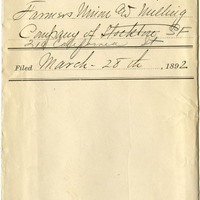 Farmers Union & Milling
Company of Stockton, SF
319 California St
Filed March - 28th, 1892